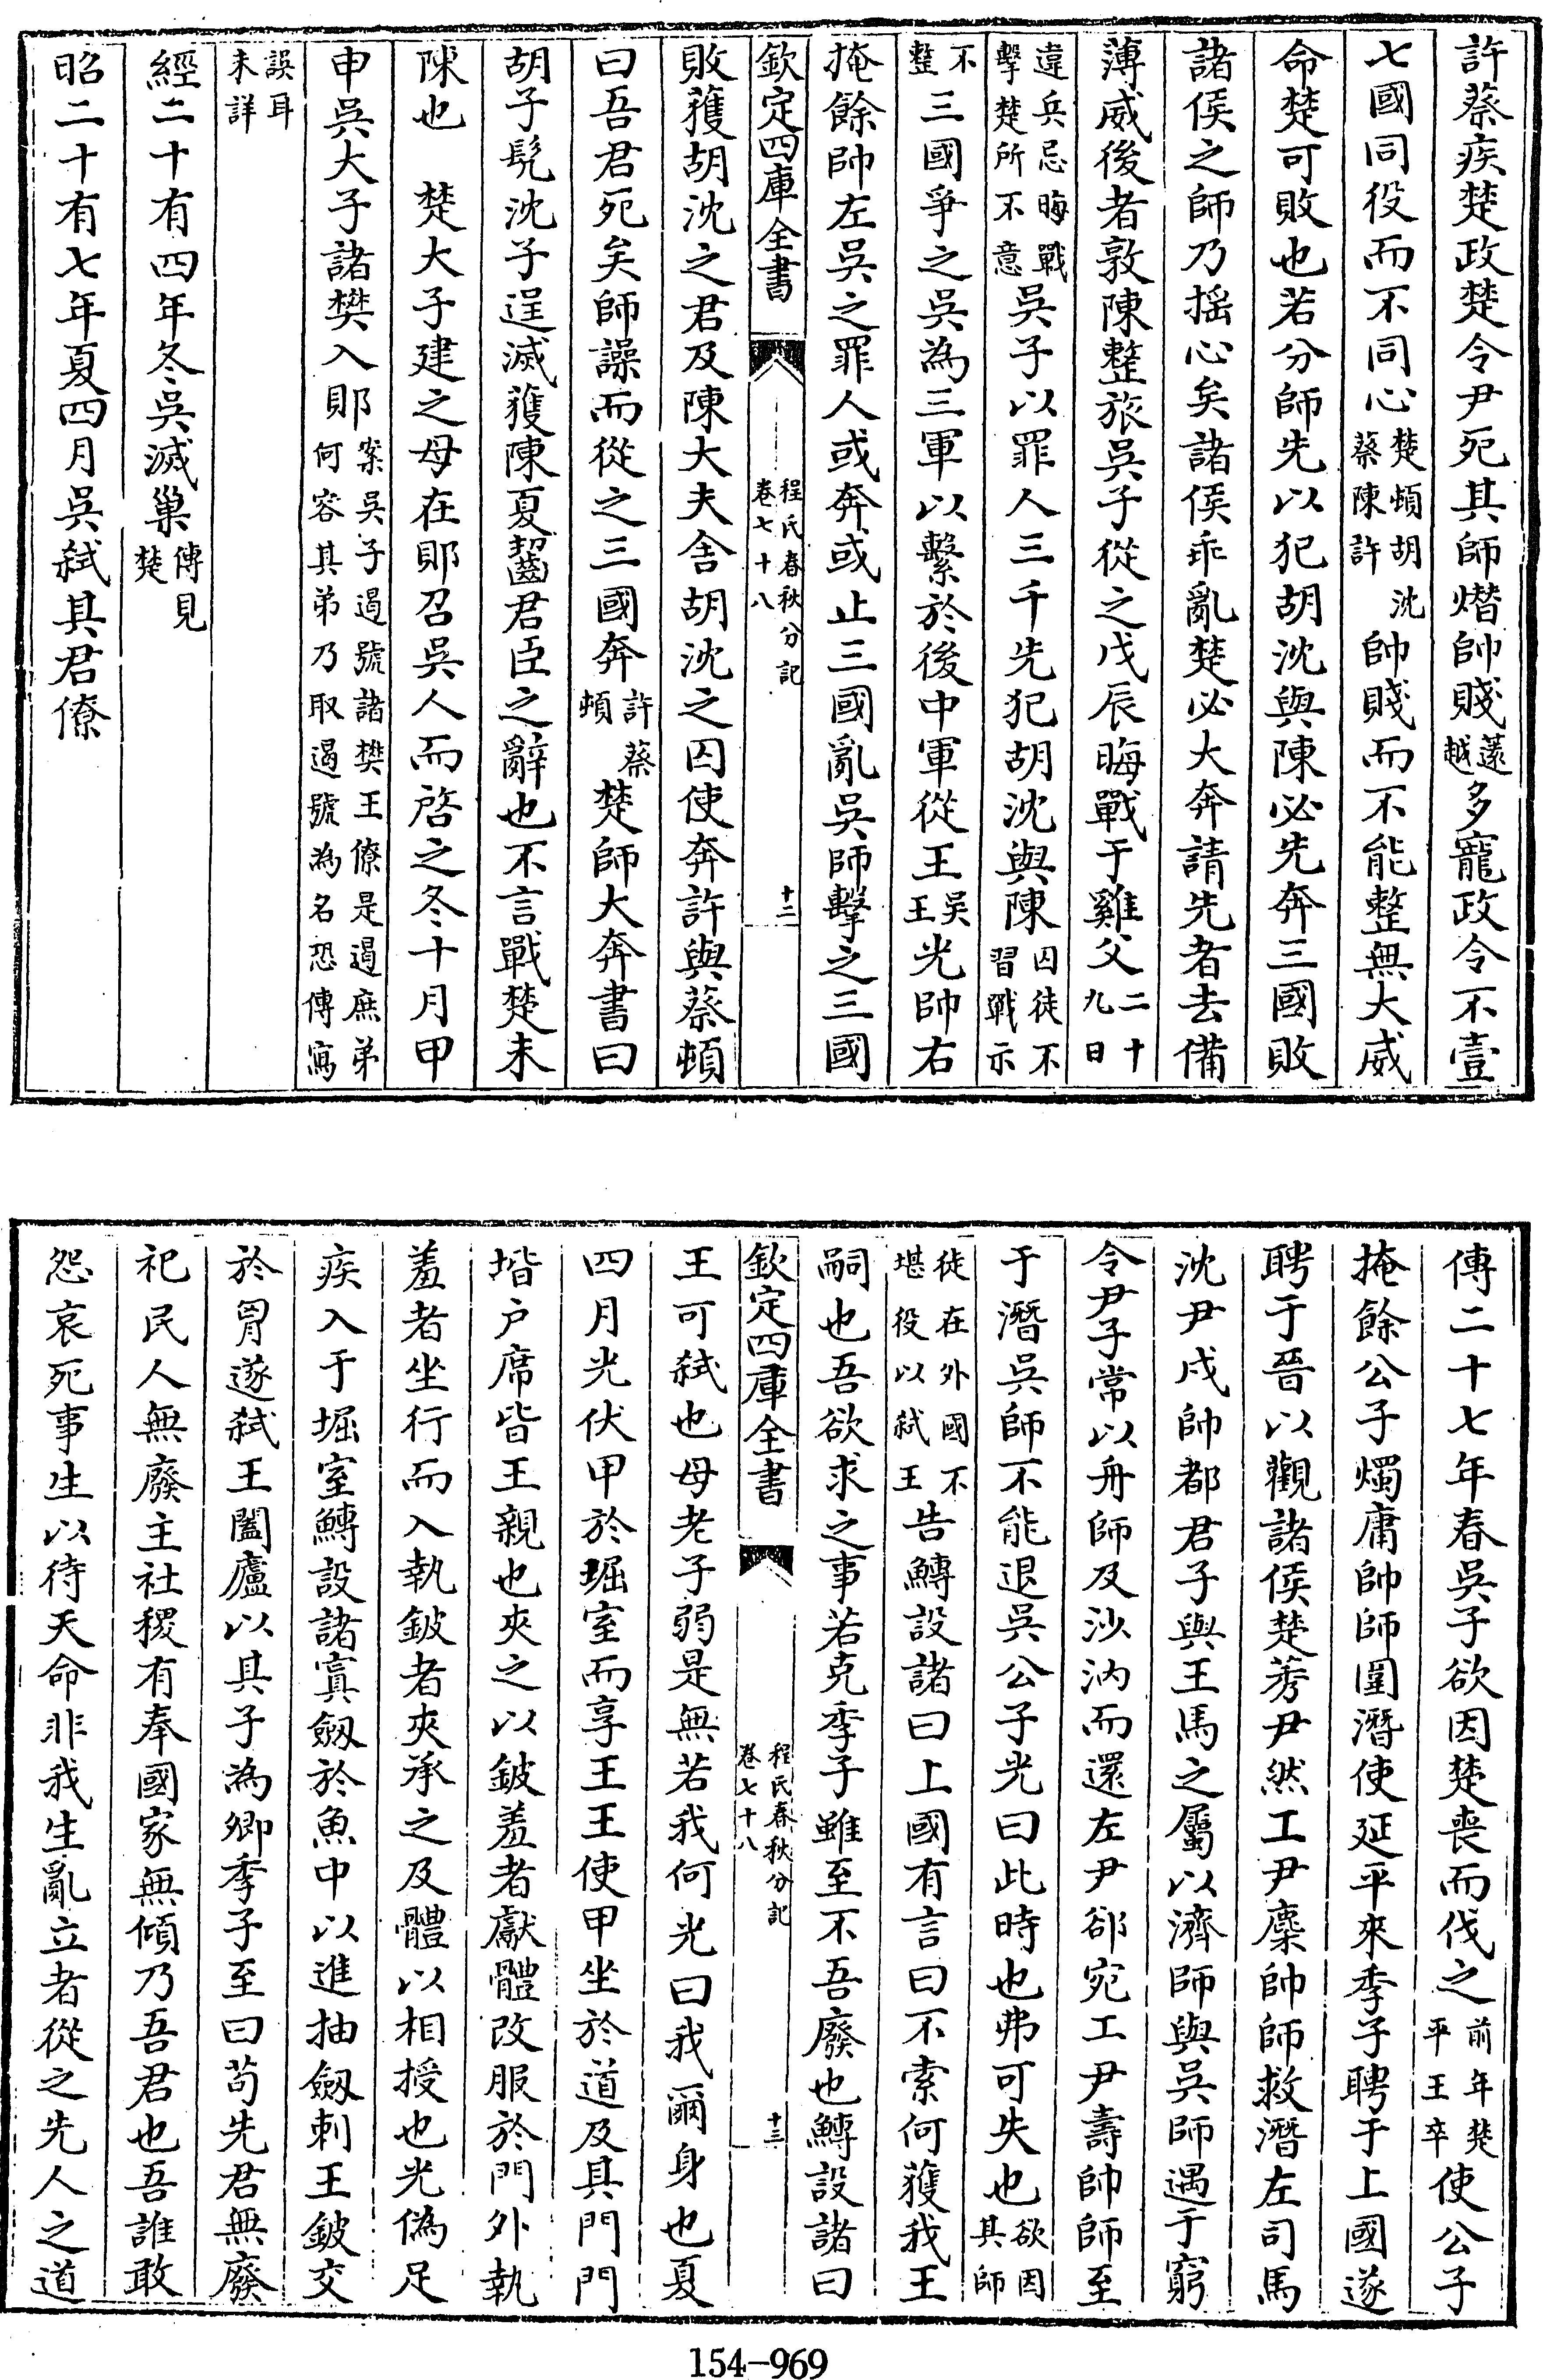 許蔡疾楚政楚令尹死其師熸帥賤薳越多寵政令不壹
七國同役而不同心楚頓胡沈蔡陳許帥賤而不能整無大威
命楚可敗也若分師先以犯胡沈與陳必先奔三國敗
諸侯之師乃揺心矣諸侯乖亂楚必大奔請先者去備
薄威後者敦陳整旅吳子從之戊辰晦戰于雞父二十九日
違兵忌晦戰擊楚所不意吳子以罪人三千先犯胡沈與陳囚徒不習戰示
不整三國爭之吳為三軍以繫於後中軍從王吳王光帥右
掩餘帥左吳之罪人或奔或止三國亂吳師擊之三國
欽定四庫全書
程氏春秋分記
卷七十八
十二
敗獲胡沈之君及陳大夫舍胡沈之囚使奔許與蔡頓
曰吾君死矣師譟而從之三國奔許蔡頓楚師大奔書曰
胡子髠沈子逞滅獲陳夏齧君臣之辭也不言戰楚未
陳也　楚大子建之母在郹召吳人而啓之冬十月甲
申吳大子諸樊入郹案吳子遏號諸樊王僚是遏庶弟何容其弟乃取遏號為名恐傳寫
誤耳未詳
經二十有四年冬吳滅巢傳見楚
昭二十有七年夏四月吳弑其君僚
傳二十七年春吳子欲因楚喪而伐之前年楚平王卒使公子
掩餘公子燭庸帥師圍潛使延平來季子聘于上國遂
聘于晉以觀諸侯楚莠尹然工尹麇帥師救潛左司馬
沈尹戌帥都君子與王馬之屬以濟師與吳師遇于窮
令尹子常以舟師及沙汭而還左尹郤宛工尹壽帥師至
于潛吳師不能退吳公子光曰此時也弗可失也欲因其師
徒在外國不堪役以弑王告鱄設諸曰上國有言曰不索何獲我王
嗣也吾欲求之事若克季子雖至不吾廢也鱄設諸曰
欽定四庫全書
程氏春秋分記
卷七十八
十三
王可弑也母老子弱是無若我何光曰我爾身也夏
四月光伏甲於堀室而享王王使甲坐於道及其門門
堦户席皆王親也夾之以鈹羞者獻體改服於門外執
羞者坐行而入執鈹者夾承之及體以相授也光偽足
疾入于堀室鱄設諸寘劔於魚中以進抽劔刺王鈹交
於胷遂弑王闔廬以其子為卿季子至曰茍先君無廢
祀民人無廢主社稷有奉國家無傾乃吾君也吾誰敢
怨哀死事生以待天命非我生亂立者從之先人之道
154-969